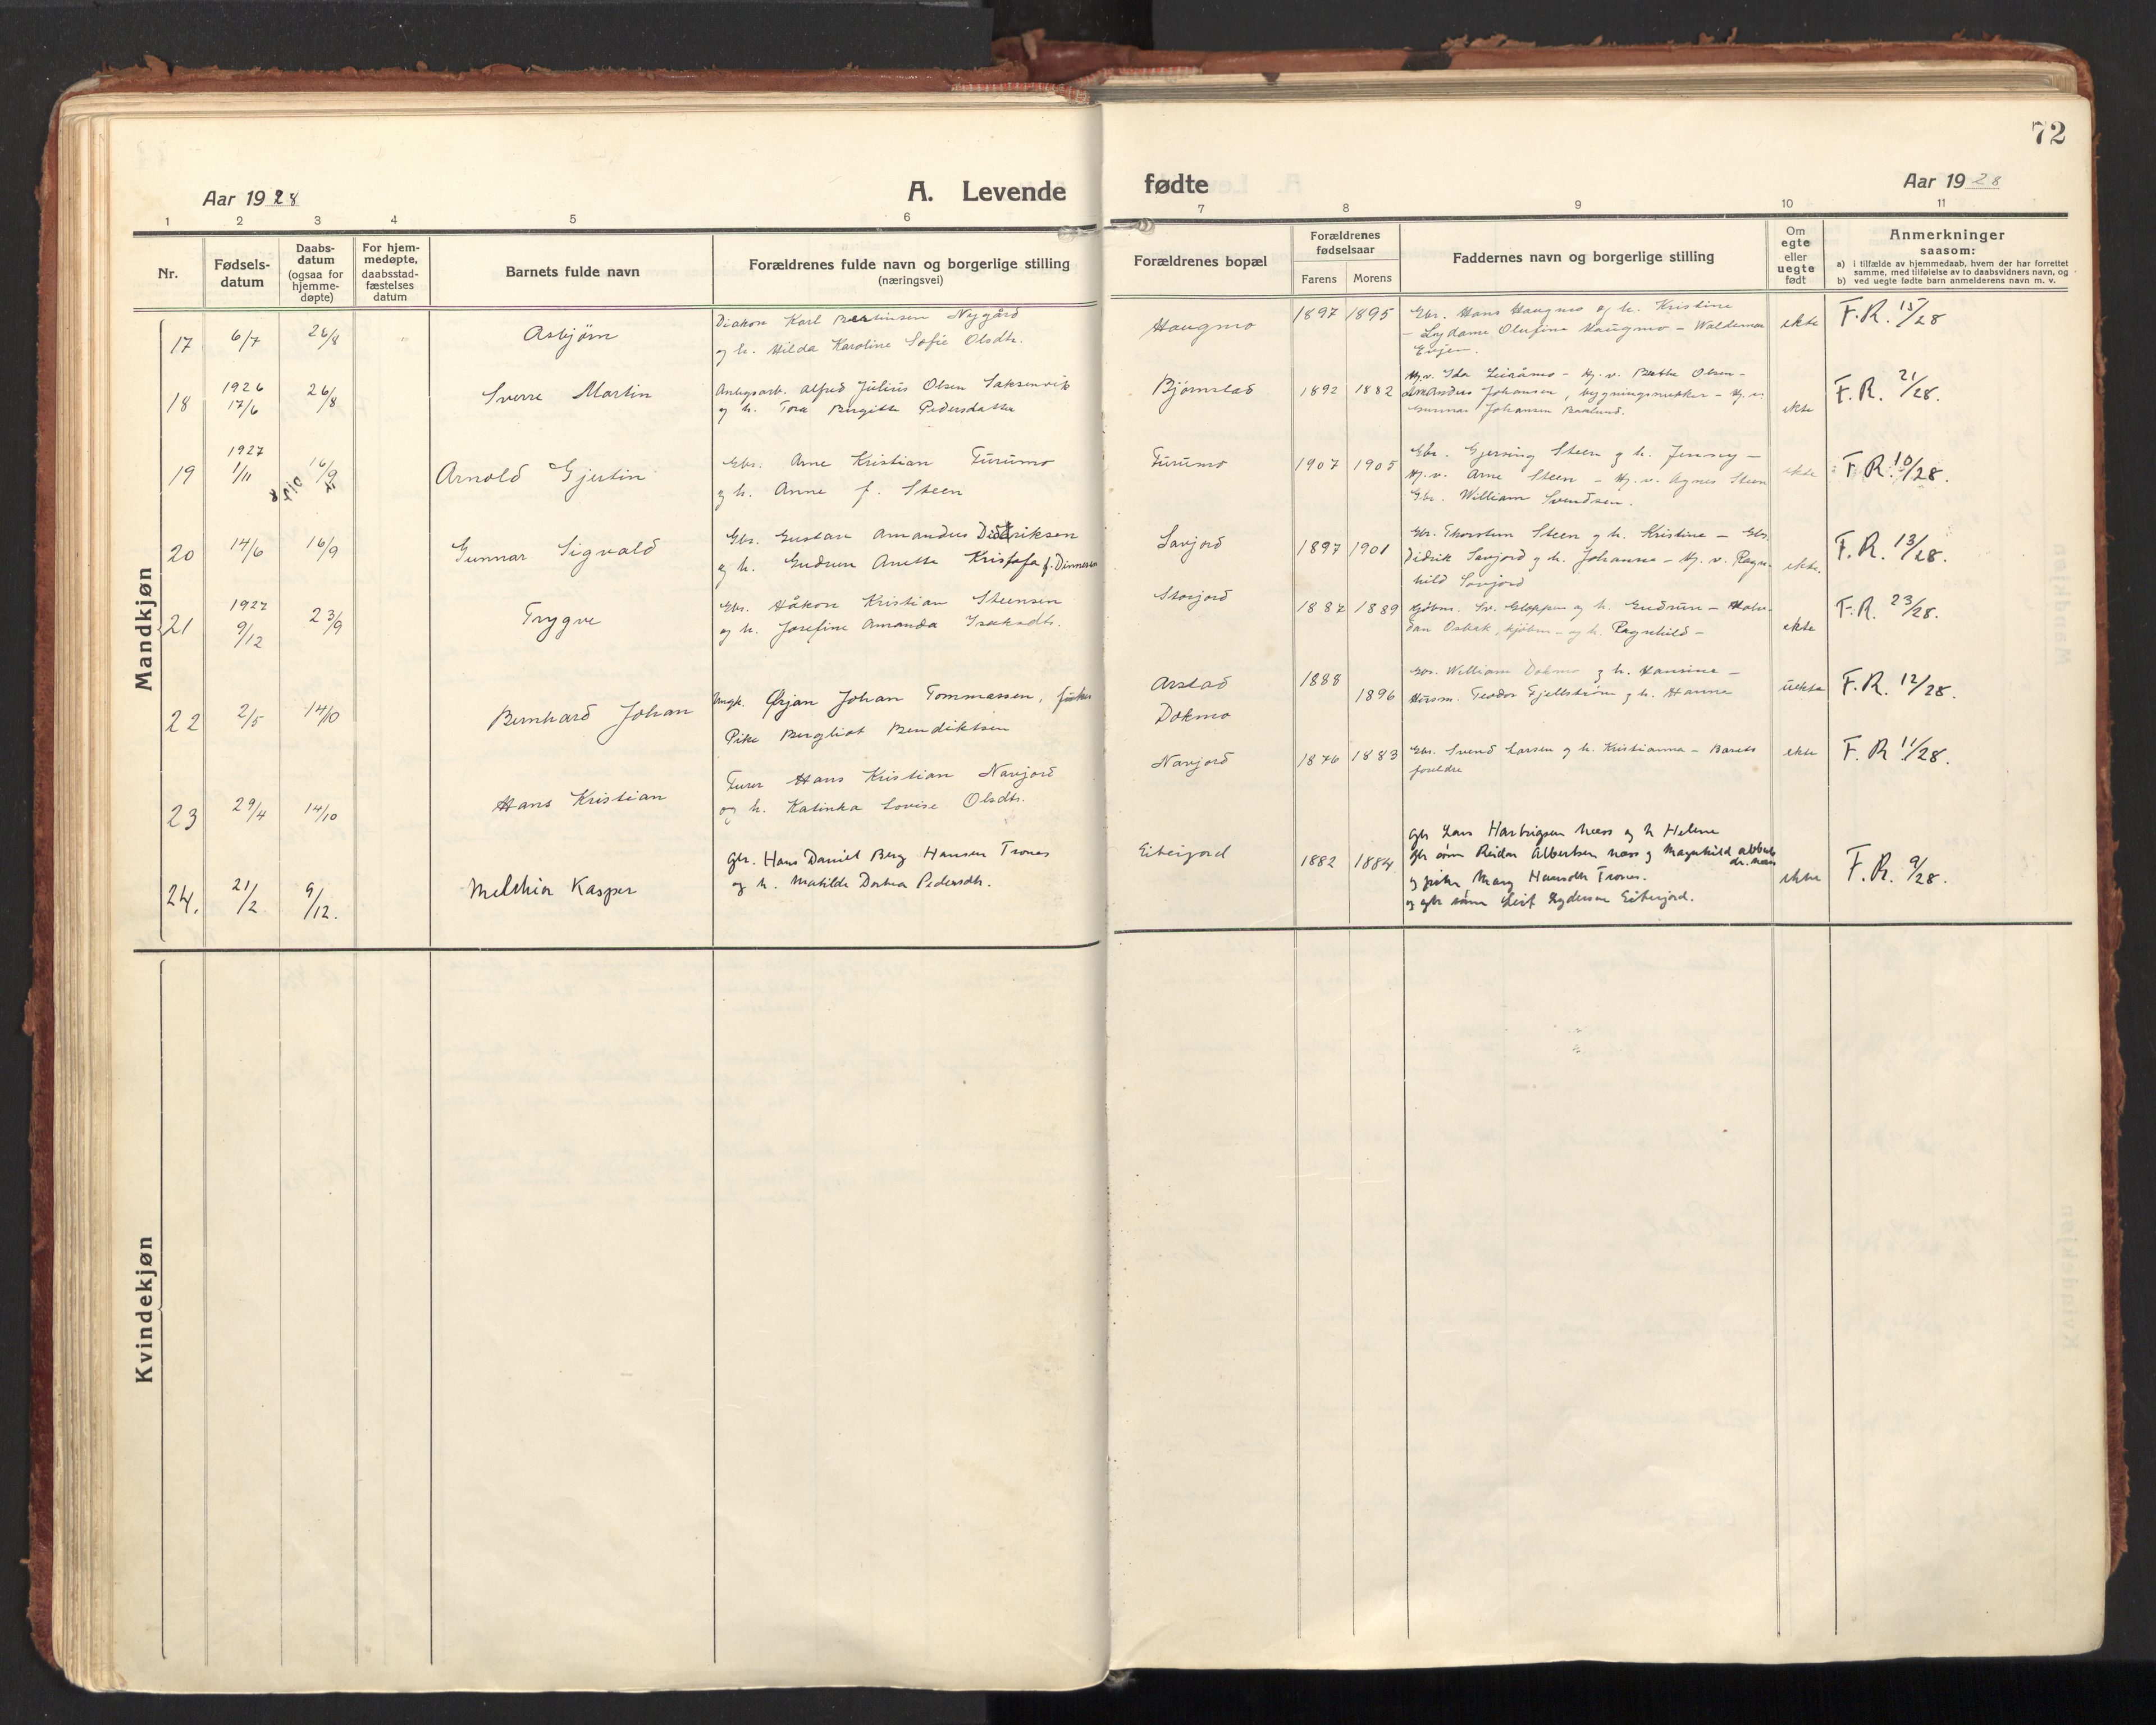 72
Aar 1928
A. Levende
fødte
Aar 1928
1 2 3 4 5 6 7 8 9 10 11
Nr.
Fødsels-
datum
Daabs-
datum
(ogsaa for
hjemme-
døpte)
For hjem-
medøpte,
daabsstad-
fæstelses
datum
Barnets fulde navn
Forældrenes fulde navn og borgerlige stilling
(næringsvei)
Forældrenes bopæl
Forældrenes
fødselsaar
Farens Morens
Faddernes navn og borgerlige stilling
Om
egte
eller
uegte
født
Anmerkninger
saasom:
a) i tilfælde av hjemmedaab, hvem der har forrettet
samme, med tilføielse av to daabsvidners navn, og
b) ved uegte fødte barn anmelderens navn m. v.
Mandkjøn
17 6/7 26/8 Asbjørn
Diakon Karl Bertinsen Nygård
og h. Hilda Karoline Sofie Olsdtr.
Haugmo 1897 1895
Gbr. Hans Haugmo og h. Kristine
– Lagdame Olufine Haugmo – Waldemar
Evjen.
ekte F.R. 15/28
18 1926 17/6 26/8 Sverre Martin
Anlegsarb. Alfred Julius Olsen Saksenvik
og h. Tora Birgitte Pedersdatter
Bjørnstad 1892 1882
Hj.v. Ida Leiråmo – Hj. v. Berthe Olsen –
Andreas Johansen, bygningssnekker –
Gunnar Johansen
ekte F.R. 21/28.
19 1927 1/11 16/9 Arnold Gjertin
Gbr. Arne Kristian Furumo
og h. Anne f. Steen
Furumo 1907 1905
Gbr. Gjerning Steen og h. Jenny –
Hj.v. Arne Steen – Hj. v. Agnes Steen
Gbr. William Svendsen.
ekte F.R. 10/28.
20 14/6 16/9 Gunnar Sigvald
Gbr. Gustav Amandus Didriksen
og h. Gudrun Anette Kristofa f. Dinnesen
Savjord 1897 1901
Gbr. Thorstein Steen og h. Kristine – Gbr.
Didrik Savjord og h. Johanna – Hj. v. Ragn-
hild Savjord
ekte. F.R. 13/28.
21 1927 9/12 23/9 Trygve
Gbr. Håkon Kristian Steensen
og h. Josefine Amanda Isaksdtr.
Storjord 1887 1889
Kjøbm. Sv. Gloppen og h. Gudrun – Halv-
dan Osbak, kjøbm – og h. Ragnhild –
ekte F.R. 23/28.
22 2/5 14/10 Bernhard Johan
Ungk. Ørjan Johan Tommassen, fisker
Pike Bergliot Bendiktsen
Arstad
Dokmo
1888
1896
Gbr. William Dokmo og h. Hansine –
Husm. Teodor Fjellstrøm og h. Hanna
uekte F.R. 12/28.
23 29/4 14/10 Hans Kristian
Furer Hans Kristian Navjord
og h. Katinka Lovise Olsdtr.
Navjord 1876 1883
Gbr. Svend Larsen og h. Kristianna – Barets
foreldre
ekte F.R. 11/28.
24. 21/2 9/12. Melchior Kasper
Gbr. Hans Daniel Berg Hansen Trones
og h. Matilde Dortea Pedersdtr.
Eiterjord 1882 1884
Gbr Lars Hartvigsen Næss og h Helene
Gbr søn Reidar Albertsen Næss og Magnhild Alberts
dr. Næss
og pike Mary Hansdtr Trones.
og gbr sønn Leif Lydersen Eiterjord.
ekte F.R. 9/28.
Kvindekjøn